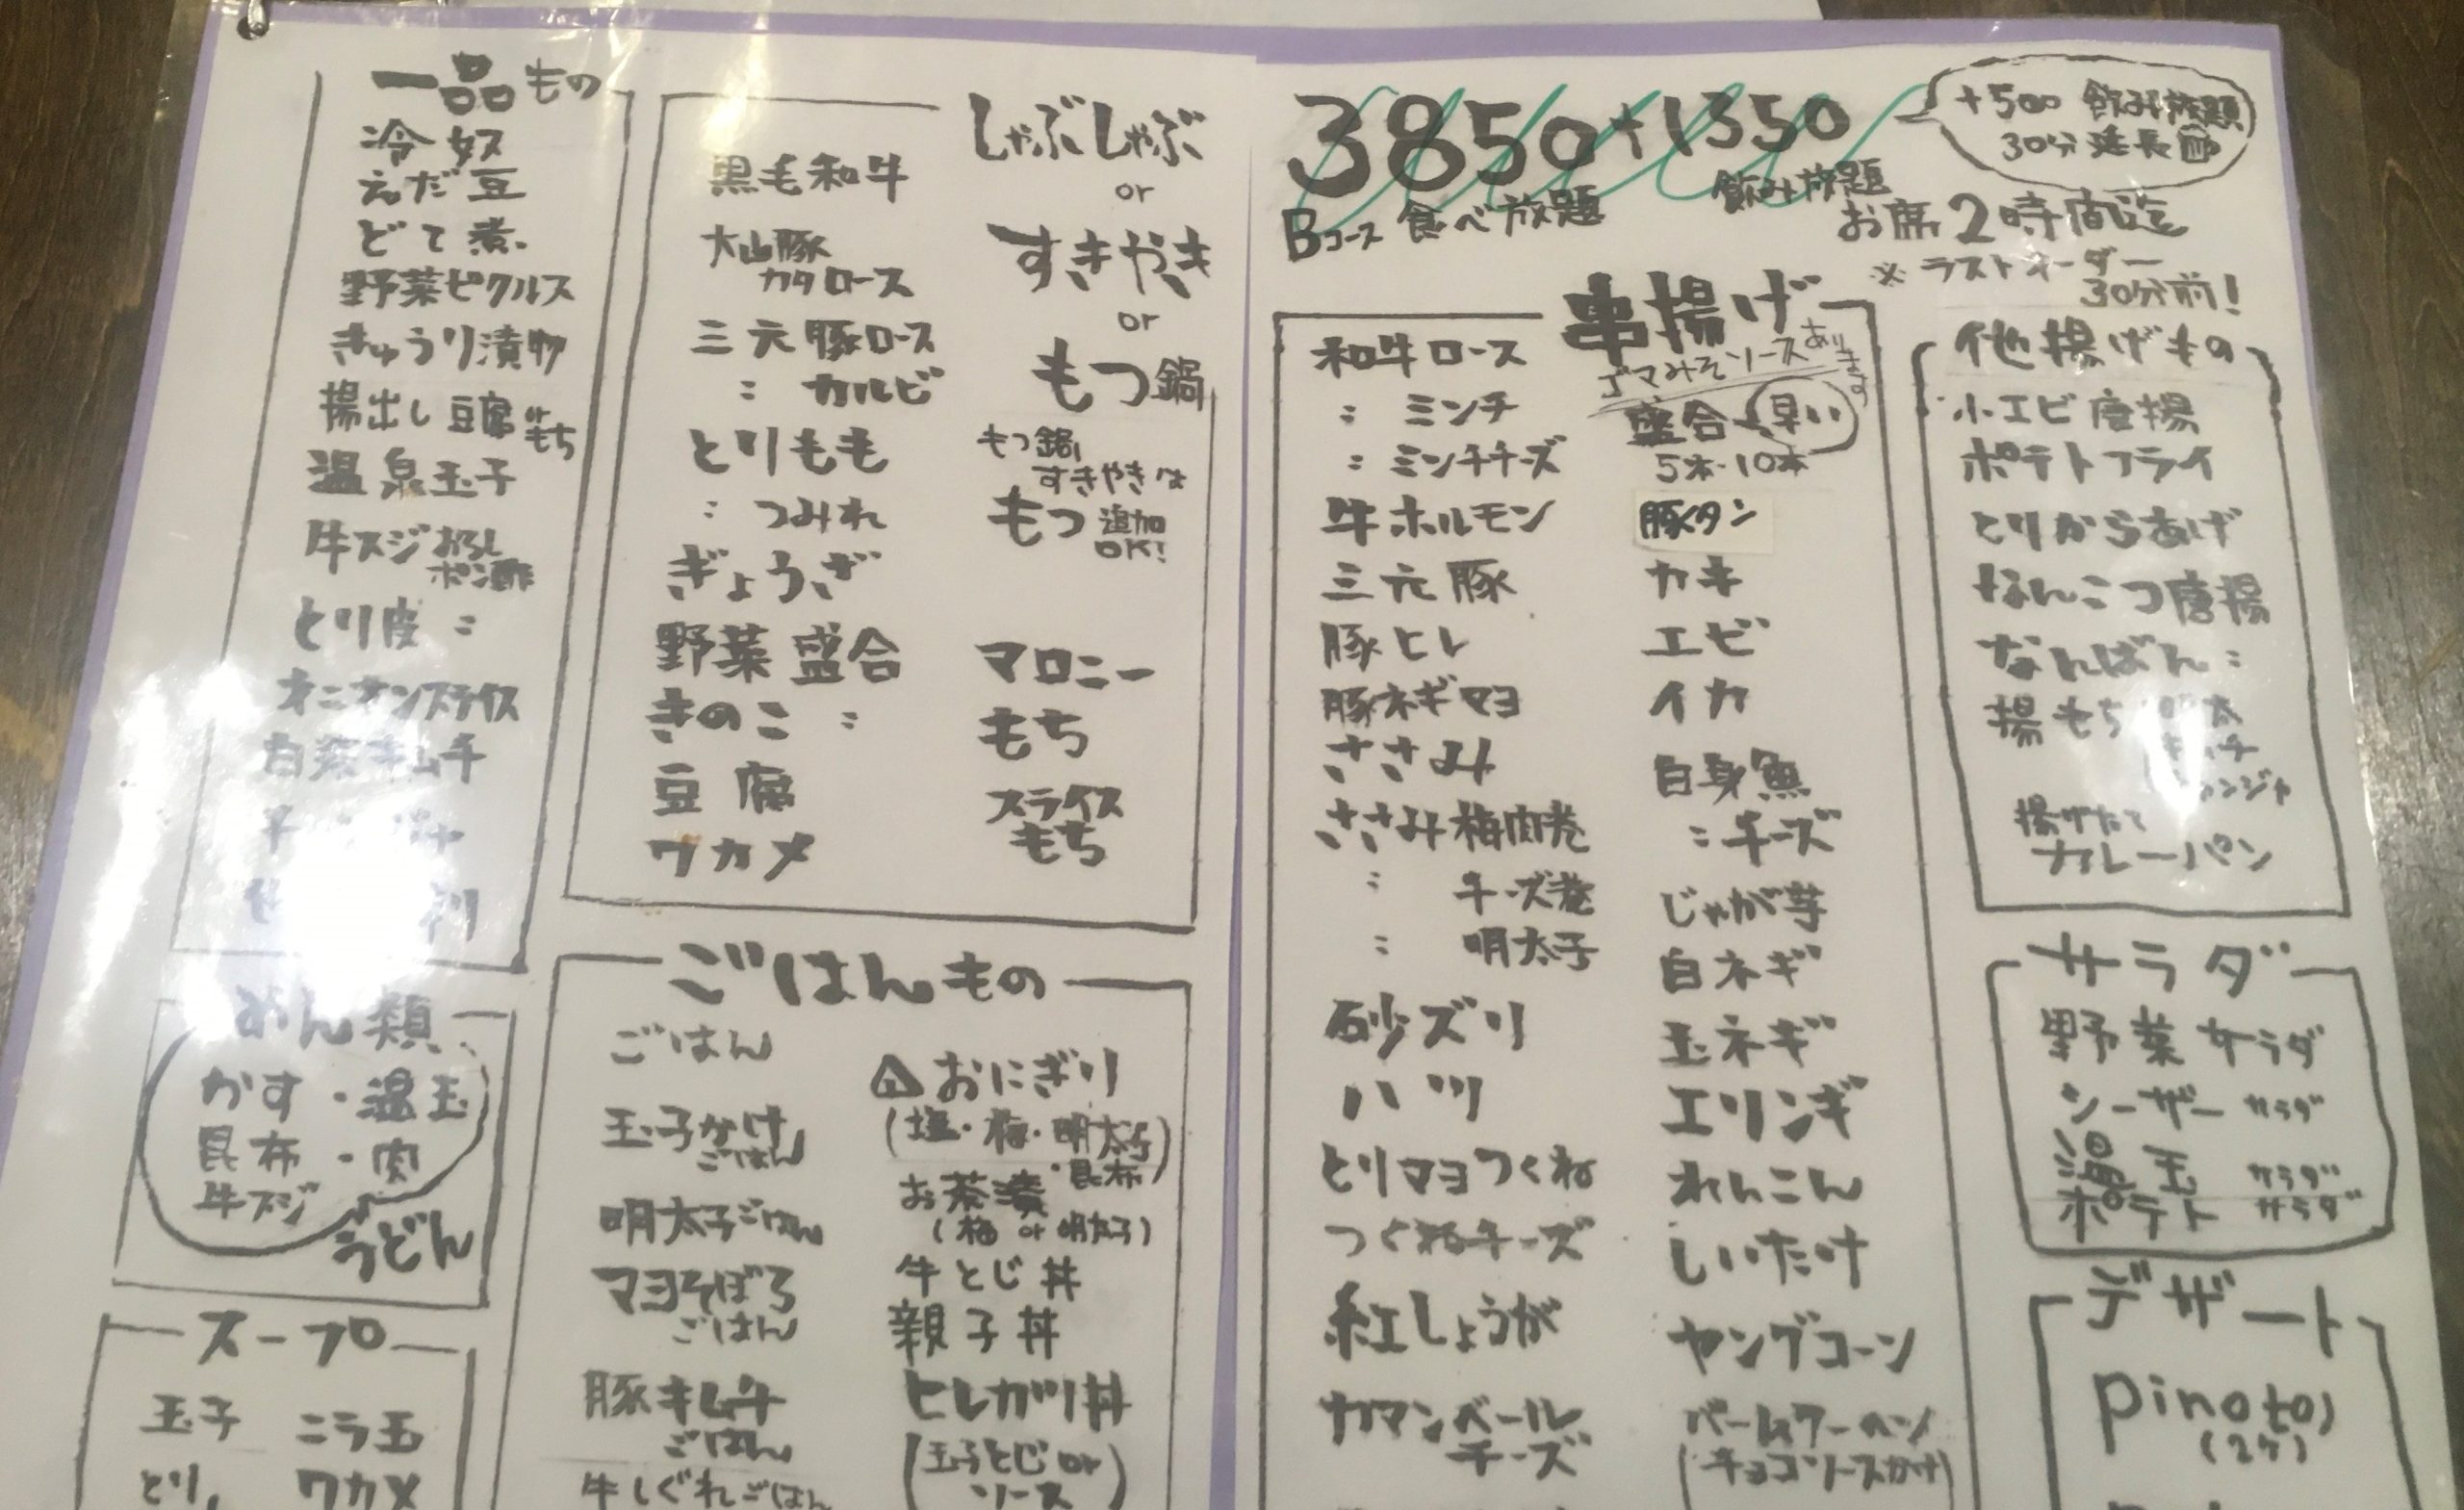 一品もの
冷奴
えだ豆
どて煮
野菜ピクルス
きゅうり漬物
揚出し豆腐 or もち
温泉玉子
牛スジ おろしポン酢
とり皮 〃
オニオンスライス
白菜キムチ
めん類
かす・温玉
昆布・肉
牛スジ
うどん
スープ
玉子 ニラ玉
とり ワカメ
しゃぶしゃぶ
or
すきやき
or
もつ鍋
もつ鍋、
すきやきは
もつ 追加OK!
黒毛和牛
大山豚
カタロース
三元豚ロース
〃 カルビ
とりもも
〃 つみれ
ぎょうざ
野菜盛合
きのこ 〃
豆腐
ワカメ
マロニー
もち
スライス
もち
ごはんもの
ごはん
玉子かけ
ごはん
明太子ごはん
マヨそぼろ
ごはん
豚キムチ
ごはん
牛しぐれごはん
おにぎり
(塩・梅・明太子
・昆布)
お茶漬
(梅 or 明太子)
牛とじ丼
親子丼
ヒレカツ丼
(玉子とじ or
ソース)
3850+1350
Bコース 食べ放題 飲み放題
+500 飲み放題
30分延長
お席2時間迄
※ラストオーダー
30分前!
串揚げ
ゴマみそソースあります
和牛ロース
〃 ミンチ
〃 ミンチチーズ
牛ホルモン
三元豚
豚ヒレ
豚ネギマヨ
ささみ
ささみ梅肉巻
〃 チーズ巻
〃 明太子
砂ズリ
ハツ
とりマヨつくね
つくねチーズ
紅しょうが
カマンベール
チーズ
盛合 早い
5本・10本
豚タン
カキ
エビ
イカ
白身魚
〃チーズ
じゃが芋
白ネギ
玉ネギ
エリンギ
れんこん
しいたけ
ヤングコーン
バームクーヘン
(チョコソースかけ)
他揚げもの
小エビ唐揚
ポテトフライ
とりからあげ
なんこつ唐揚
なんばん〃
揚もち 明太
キムチ
チャンジャ
揚げたて
カレーパン
サラダ
野菜サラダ
シーザーサラダ
温玉サラダ
ポテトサラダ
デザート
pino
(2ケ)